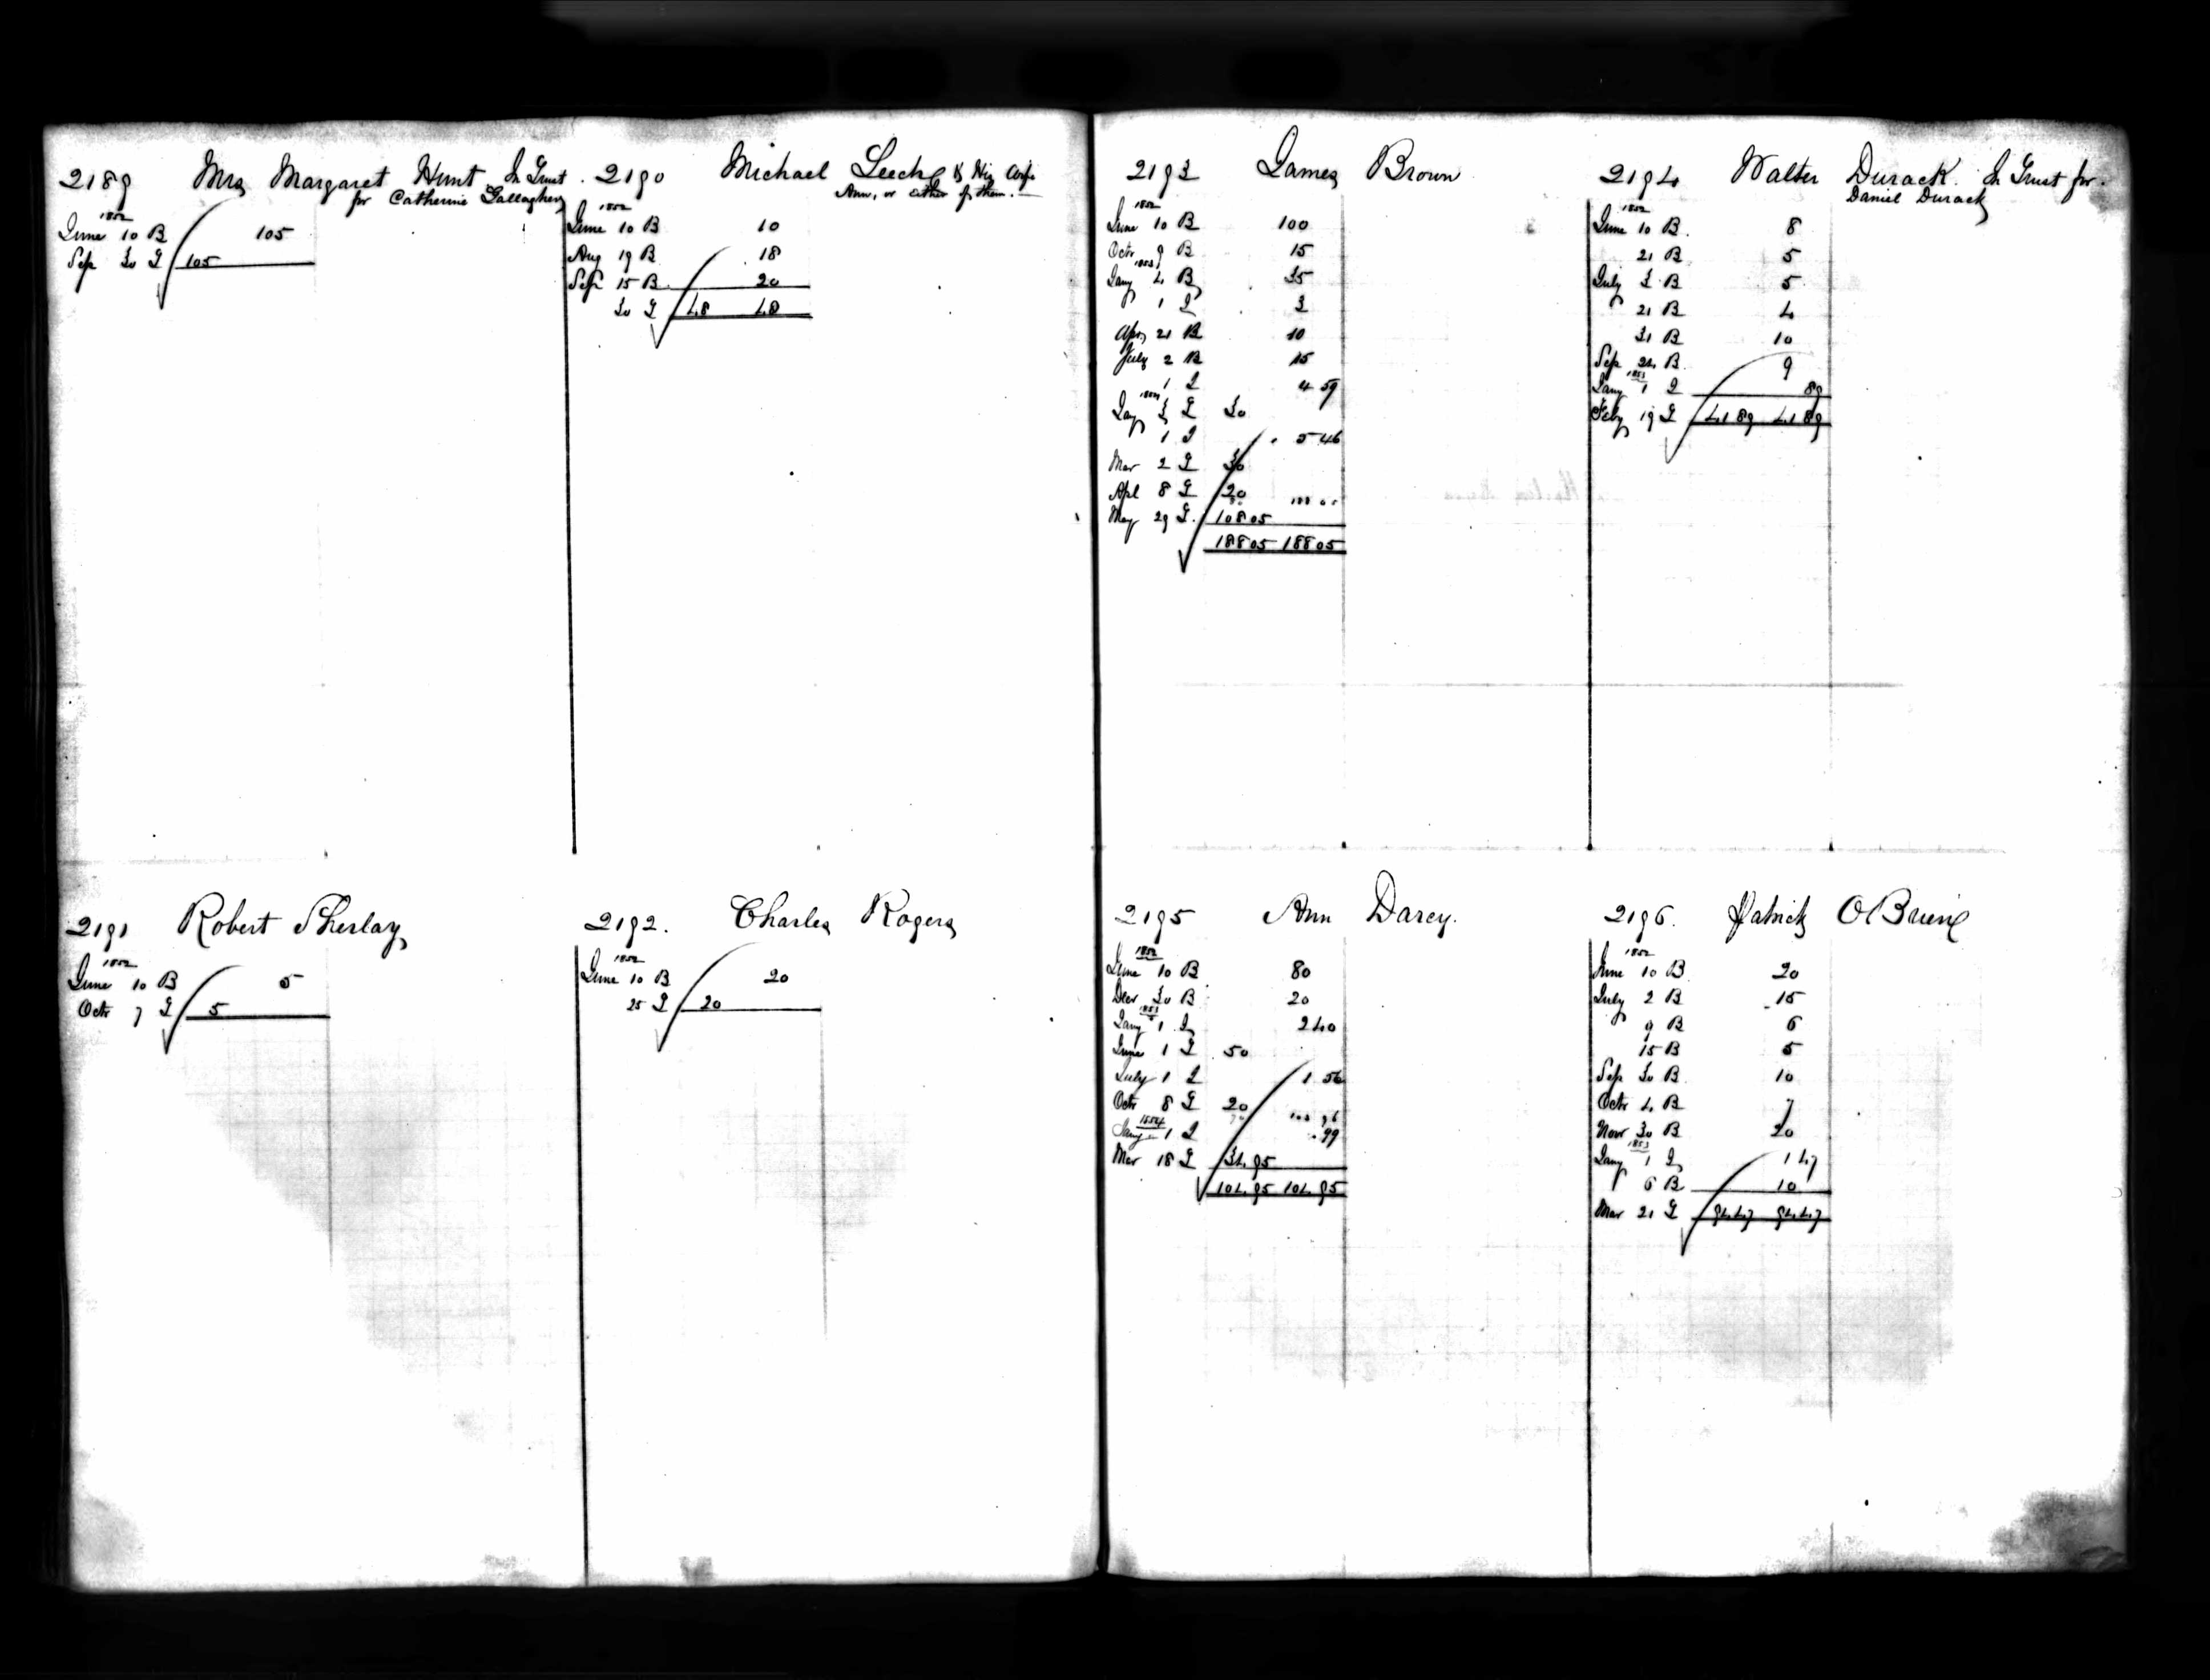 2189 Mrs Margaret Hunt In Trust
for Catherine Gallagher
1852
June 10 B 105
Sep 30 I 105
2190 Michael Leech & His Wife
Ann, or either of them.
1852
June 10 B 10
Aug 19 B 18
Sep 15 B 20
30 I 48 48
2191 Robert Sherlay
1852
June 10 B 5
Octr 7 I 5
2192. Charles Rogers
1852
June 10 B 20
25 I 20
2193 James Brown
1852
June 10 B 100
Octr 9 B 15
1853
Jany 4 B 35
1 I 3
Apr 21 B 10
July 2 B 15
1 I 4 59
1854
Jany 3 I 30
1 I 5 46
Mar 2 I 30
Apl 8 I 20
May 29 I 108 05
188 05 188 05
2194 Walter Durack. In Trust for
Daniel Durack
1852
June 10 B 8
21 B 5
July 3 B 5
21 B 4
31 B 10
Sep 24 B 9
1853
Jany 1 I 89
Feby 19 I 41 89 41 89
2195 Ann Darcy.
1852
June 10 B 80
Decr 30 B 20
1853
Jany 1 I 2 40
June 1 I 50
July 1 I 1 56
Octr 8 I 20
1854
Jany 1 I .99
Mar 18 I 34 95
104 95 104 95
2196. Patrick O'Brien
1852
June 10 B 20
July 2 B 15
9 B 6
15 B 5
Sep 30 B 10
Octr 4 B 7
Novr 30 B 20
1853
Jany 1 I 1 47
6 B 10
Mar 21 I 94 47 94 47